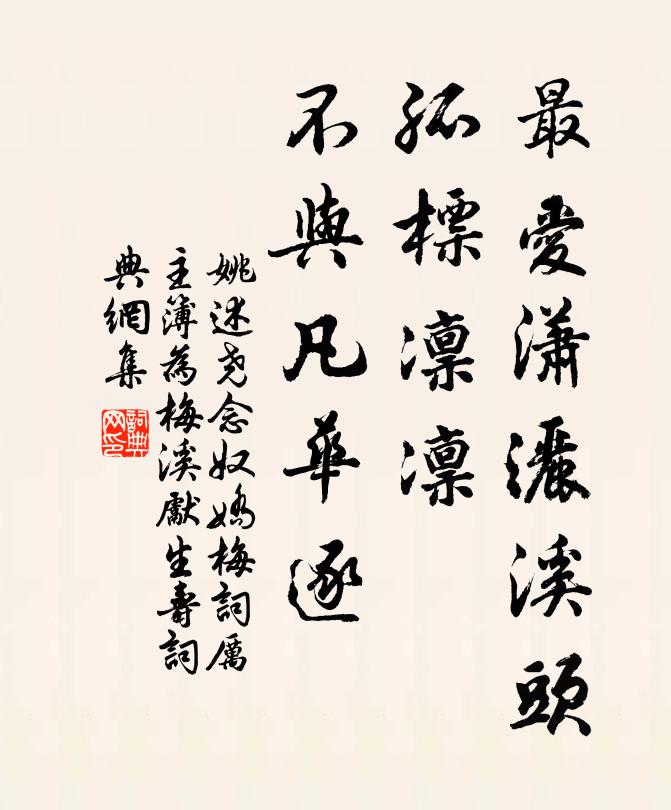 最愛瀟灑溪頭
孤標凛凛
不與凡華逐
姚述尧念奴嬌梅詞厲
主簿為梅溪獻生壽詞
典網集
詞典
网印